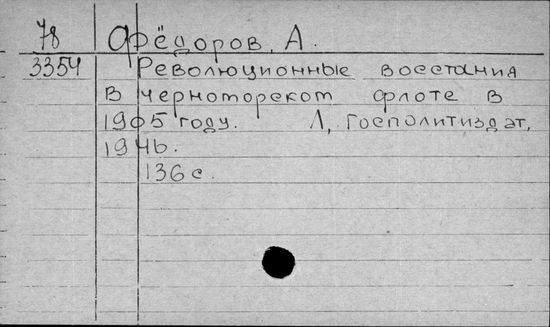 78 Фёдоров, А.
3354 Революционные восстания
в черноморском флоте в
1905 году. Л, Госполитиздат,
1946.
136 с.